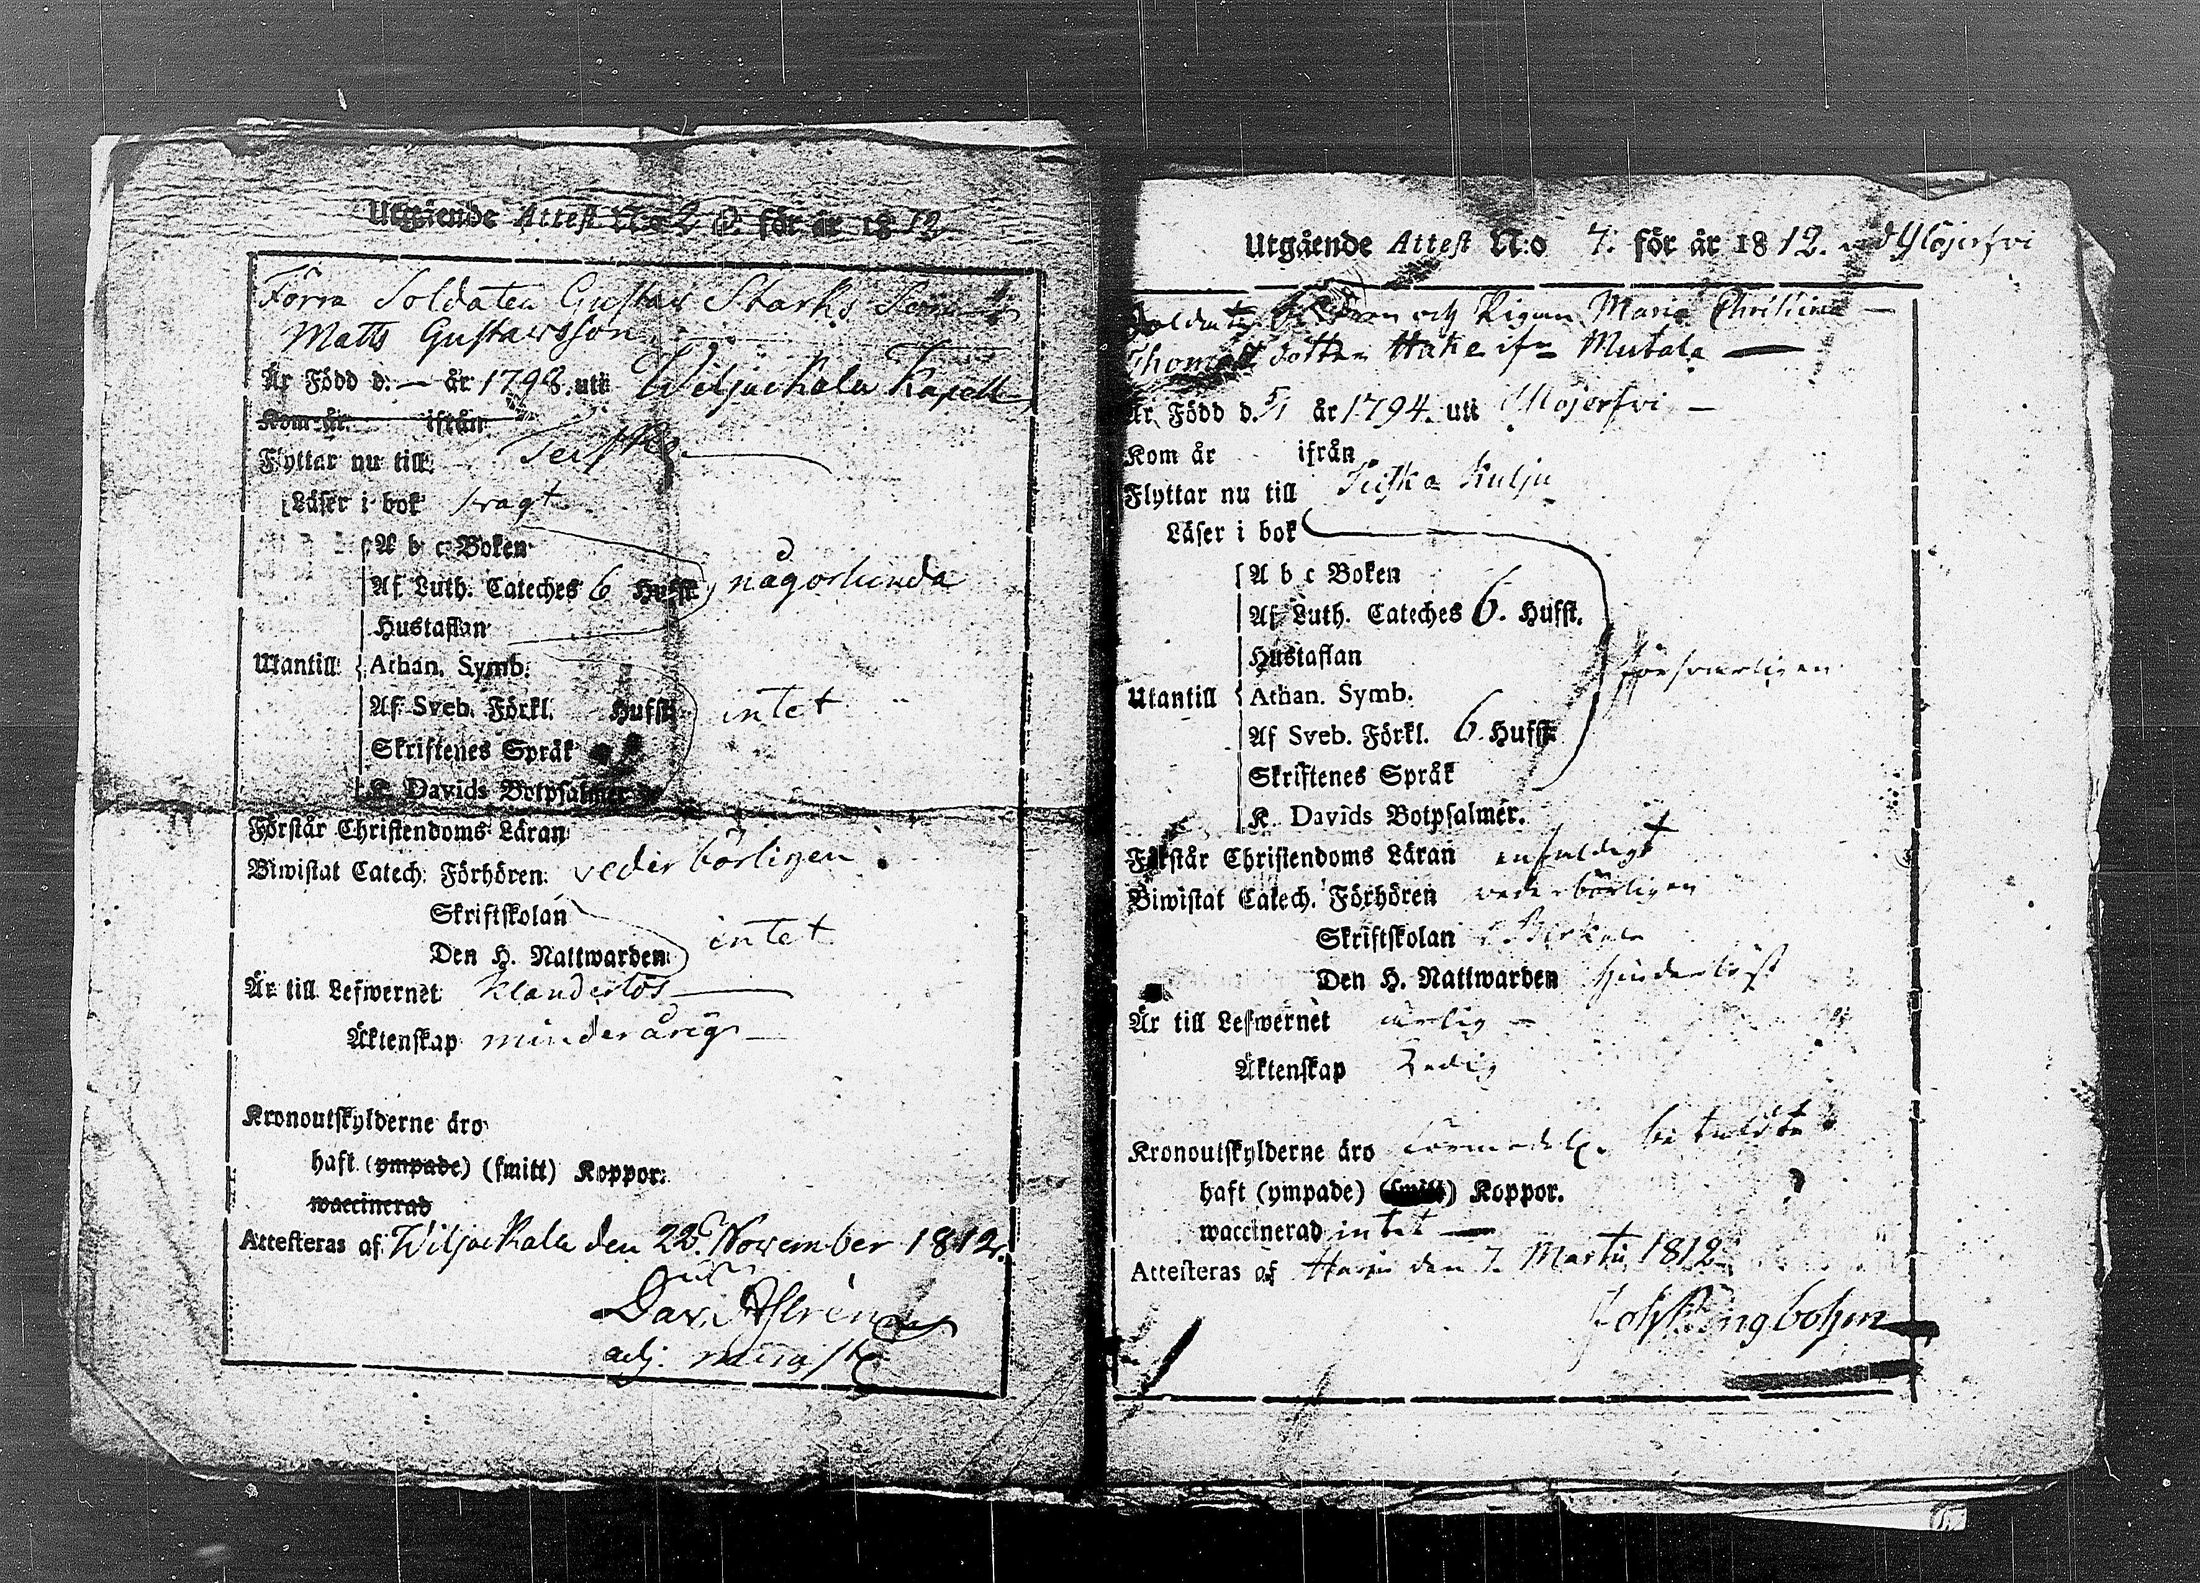 Utgående Attest N:o 28. för år 1812.
Förra Soldaten Gustav Starks Son
Matts Gustavsson
Är Född d: — år 1798. uti Wiljackala Kapell
Kom år ifrån
Flyttar nu till:
Läser i bok svagt
A b c Boken
Af Luth. Cateches 6 Hufst. någorlunda
Hustaflan
Utantill Athan. Symb.
Af Sveb. Förkl. Hufst. intet
Skriftenes Språk
K. Davids Botpsalmer
Förstår Christendoms Läran
Biwistat Catech. Förhören: vederbörligen.
Skriftskolan
Den H. Nattwarden: intet
Är till Lefwernet klanderlös
Äktenskap minderårig
Kronoutskylderne äro
haft (ympade) (smitt) Koppor.
waccinerad
Attesteras af Wiljackala den 22 November 1812.
Dav.
adj.
Utgående Attest N:o 7. för år 1812. Ylöjerfvi
Soldats och Pigan Maria Christina
Thomas dotter Hake ifr. Mutala
Är Född d. 5/1 år 1794. uti Ylöjerfvi
Kom år ifrån
Flyttar nu till Kulju
Läser i bok
A b c Boken
Af Luth. Cateches 6. Hufst.
Hustaflan
försvarligen
Utantill Athan. Symb.
Af Sveb. Förkl. 6. Hufst.
Skriftenes Språk
K. Davids Botpsalmer.
Förstår Christendoms Läran enfaldigt
Biwistat Catech. Förhören vederbörligen
Skriftskolan i Birkala
Den H. Nattwarden hinderlöst
Är till Lefwernet ärlig
Äktenskap Ledig
Kronoutskylderne äro betalda
haft (ympade) (smitt) Koppor.
waccinerad intet
Attesteras af den 7. Martii 1812
Joh Ringbohm